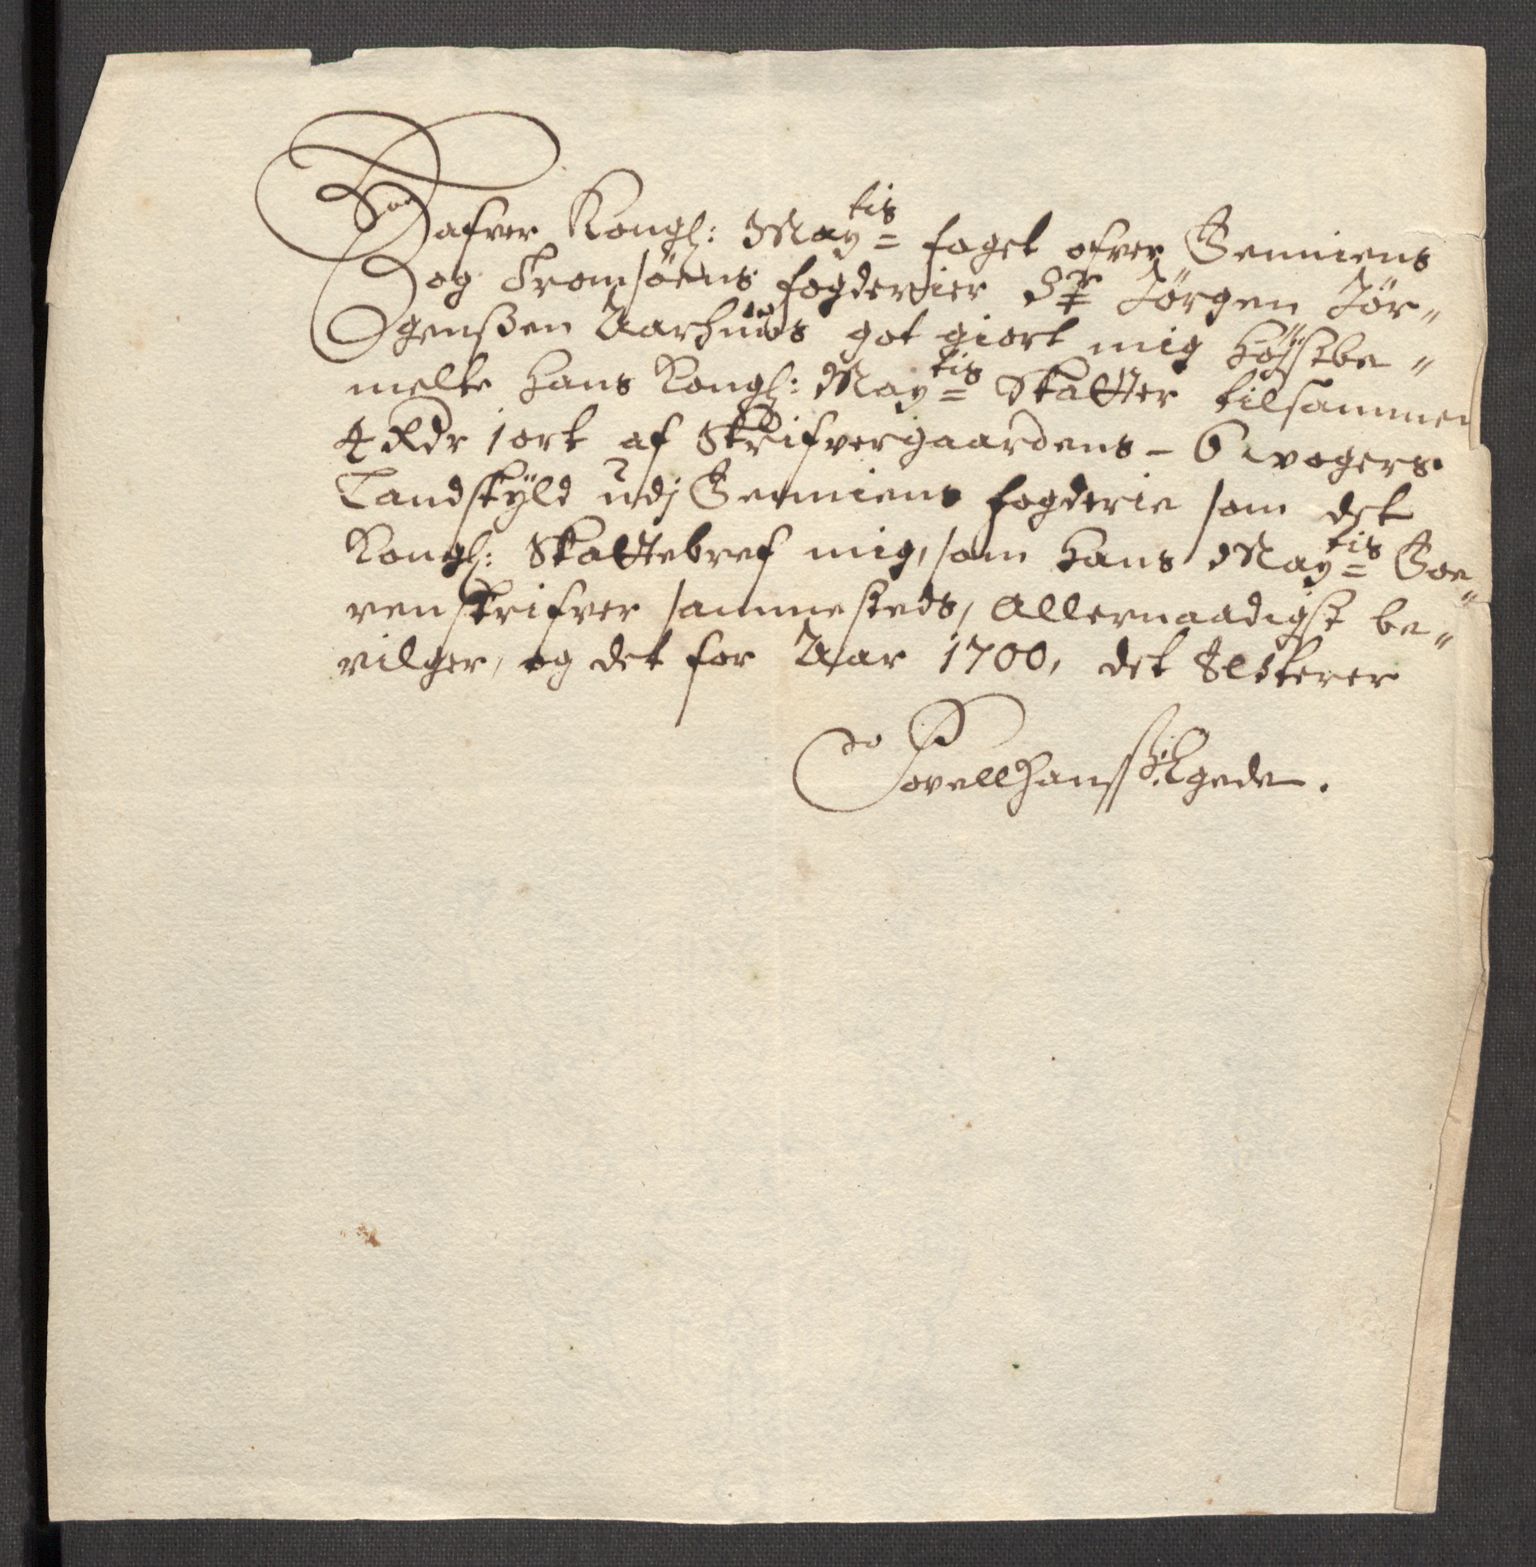 Hafver Kongl: May:tis foget ofver Senniens
og Tromsøens fogderier Sr Jørgen Jør"
gensßen Aarhuus got giort mig høystbe"
melte hans Kongl: May:tis Skatter tilsammen
4 Rdr 1 ort af Skrifvergaardens - 6 vogers
Landskÿld udj Senniens fogderie som det
Kongl: Skattebref mig, som hans May:tis Soe"
renskrifver sammesteds, Allernaadigst be"
vilger, og det for Aar 1700, det Atesterer
Povell Hanss: Egede.